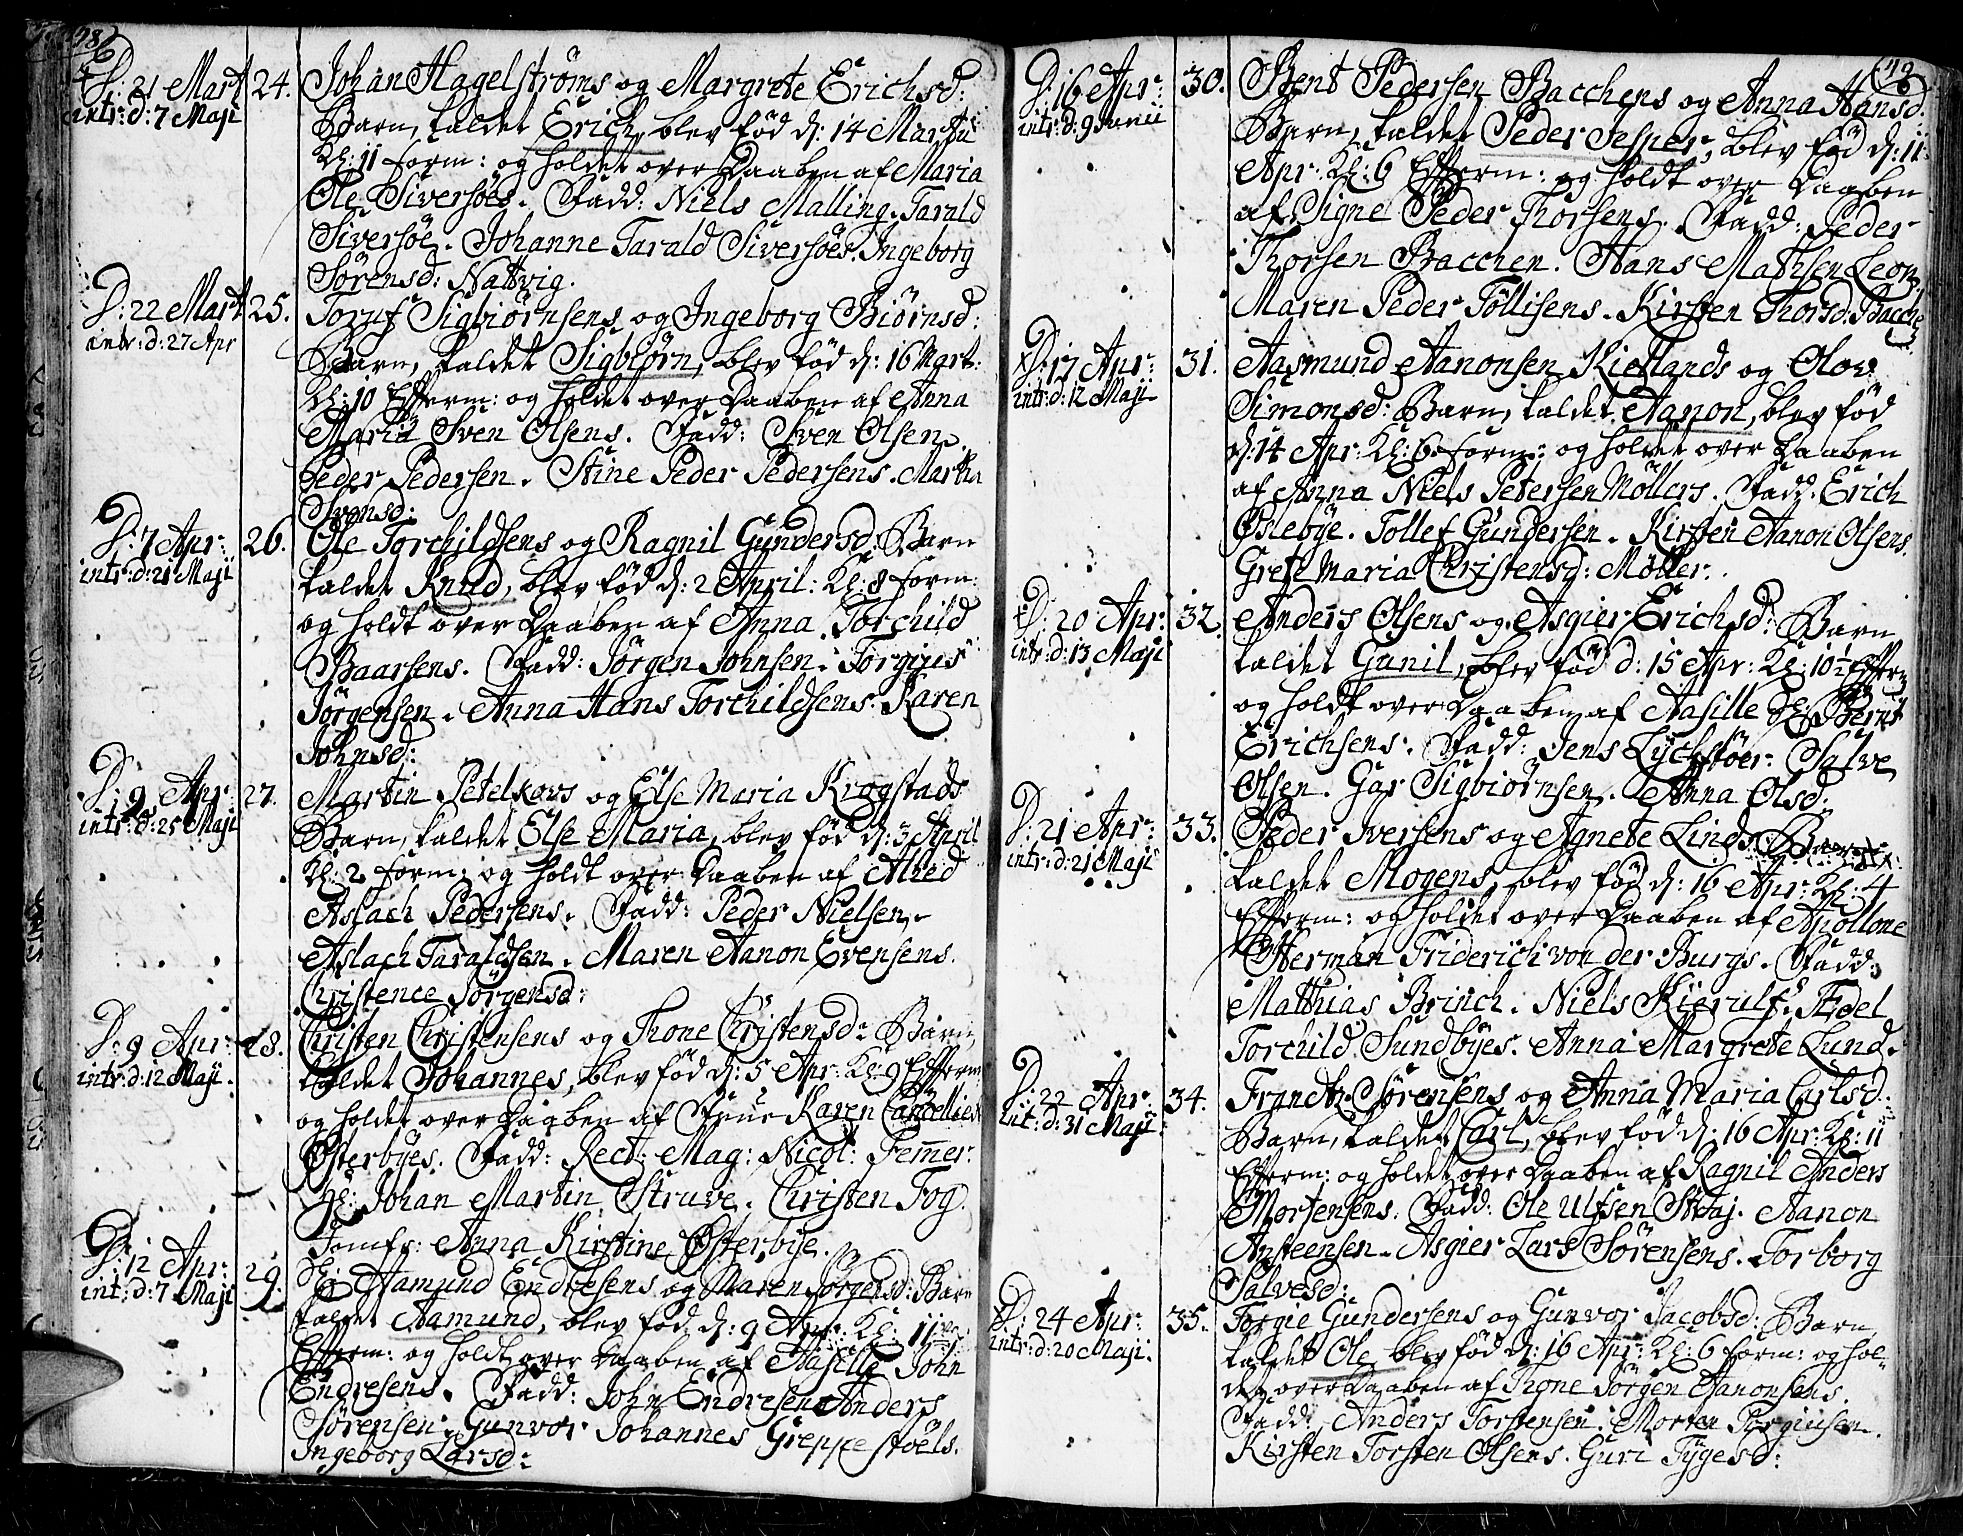 D: 21 Mart
intr: d: 7 Maji
24. Johan Hagelströms og Margrete Erichsd:
Barn, kaldet Erich, blev fød d: 14 Martii
Kl: 11 form: og holdet over Daaben af Maria
Ole Siversöes. Fadd: Niels Malling. Tarald
Siversöe. Johanne Tarald Siversöes. Ingeborg
Sörensd: Nattvig.
D: 22 Mart
intr: d: 27 Apr
25. Sigbiörnsens og Ingeborg Biörnsd:
Barn, kaldet Sigbiörn, blev fød d: 16 Mart:
Kl: 10 Efterm: og holdet over Daaben af Anna
Maria Sven Olsens. Fadd: Sven Olsen.
Peder Pedersen. Stine Peder Pedersens. Martha
Svensd:
D: 7 Apr:
intr: d: 21 Maji
26. Ole Torchildsens og Ragnil Gundersd: Barn
kaldet Knud, blev fød d: 2 April: Kl: 8 form:
og holdt over Daaben af Anna Torchild
Baarsens. Fadd: Jörgen Johnsen. Torgiuus
Jörgensen. Anna Hans Torchildsens. Karen
Johnsd:
D: 9 Apr:
intr: d: 25 Maji
27. Martin Petelkovs og Else Maria Krogstads
Barn, kaldet Else Maria, blev fød d: 3 April
Kl: 2 form: og holdt over Daaben af Alhed
Aslach Pedersens. Fadd: Peder Nielsen.
Aslach Taraldsen. Maren Aanon Evensens.
Christence Jörgensd:
D: 9 Apr:
intr: d: 12 Maji.
28. Christen Christensens og Thone Christensd: Barn
kaldet Johannes, blev fød d: 5 Apr: Kl: 9 Efterm:
og holdet over Daaben af Frue Karen Cancellier
Østerbyes. Fadd: Rect: Mag: Nicol: Femmer.
Hr: Johan Martin Struve. Christen Fog.
Jomfr: Anna Kirstine Østerbye.
D: 12 Apr:
int: d: 7 Maji
29. Aamund Endresens og Maren Jörgensd: Barn
kaldet Aamund, blev fød d: 9 Apr: Kl: 11
Efterm: og holdt over Daaben af Aasille John
Endresens. Fadd: John Endresen. Anders
Sörensen. Gunvor Johannes Greppestöels.
Ingeborg Larsd:
D: 16 Apr:
intr: d: 9 Junii
30. Bent Pedersen Bacchens og Anna Hansd:
Barn, kaldet Peder Jesper, blev fød d: 11
Apr: Kl: 6 Efterm: og holdt over Daaben
af Signe Peder Thorsens. Fadd: Peder
Thorsen Bacchen. Hans Mathsen Leon.
Maren Peder Töllisens. Kirsten Thorsd: Bacche
D: 17 Apr:
intr: d: 12 Maji
31. Aasmund Aanonsen Kiellands og Olov
Simonsd: Barn, kaldet Aanon, blev fød
d: 14 Apr: Kl: 6 form: og holdet over Daaben
af Anna Niels Petersen Möllers. Fadd: Erich
Øslebye. Tollef Gundersen. Kirsten Aanon Olsens.
Grete Maria Christensd: Møller.
D: 20 Apr:
intr: d: 13 Maji
32. Anders Olsens og Asgier Erichsd: Barn
kaldet Gunil, blev fød d: 15 Apr: Kl: 10½ Efterm
og holdt over Daaben af Aasille Bernt
Erichsens. Fadd: Jens Lychstöer. Salve
Olsen. Gar Sigbiörnsen. Anna Olsd:
D: 21 Apr:
intr: d: 21 Maji
33. Peder Iversens og Agnete Linds Barn
kaldet Mogens, blev fød d: 16 Apr: Kl: 4
Efterm: og holdet over Daaben af Apollone
Herman Friderich von der Burgs. Fadd:
Matthias Brinch. Niels Kierulf. Fidel
Torchild Sundbyes. Anna Margrete Lund.
D: 22 Apr:
int: d: 31 Maji
34. Frandtz Sörensens og Anna Maria Carlsd:
Barn, kaldet Carl, blev fød d: 16 Apr: Kl: 11
Efterm: og holdet over Daaben af Ragnil Anders
Mortensens. Fadd: Ole Ulfsen Staj. Aanon
Ansteensen. Asgier Lars Sörensens. Torborg
Salvesd:
D: 24 Apr:
intr: d: 20 Maji.
35. Torgie Gundersens og Gunvor Jacobsd: Barn
kaldet Ole blev fød d: 16 Apr: Kl: 6 form: og hol-
det over Daaben af Thone Jörgen Aanonsens
Fadd: Anders Torstensen. Morten Torgiusen.
Kirsten Torsten Olsens. Guri Tygesd: